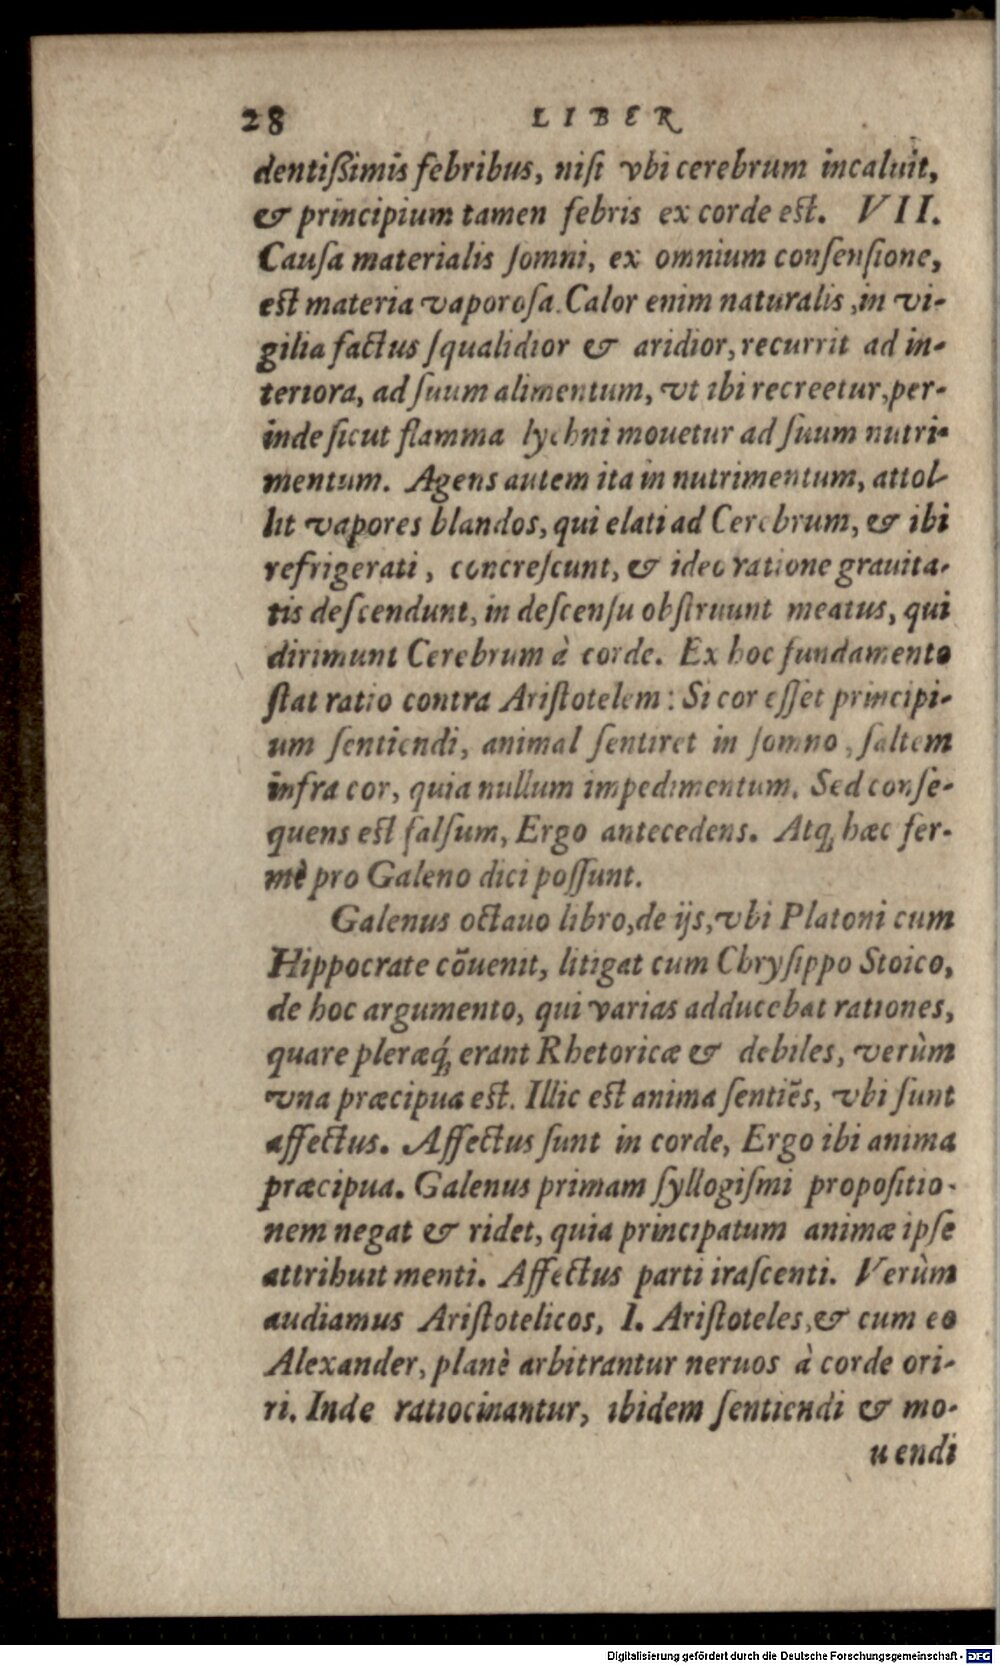 28 LIBER
dentiſſimis febribus, niſi vbi cerebrum incaluit,
& principium tamen febris ex corde eſt. VII.
Cauſa materialis ſomni, ex omnium conſenſione,
eſt materia vaporoſa. Calor enim naturalis, in vi-
gilia factus ſqualidior & aridior, recurrit ad in-
teriora, ad ſuum alimentum, vt ibi recreetur, per-
inde ſicut flamma lychni mouetur ad ſuum nutri-
mentum. Agens autem ita in nutrimentum, attol-
lit vapores blandos, qui elati ad Cerebrum, & ibi
refrigerati, concreſcunt, & ideo ratione grauita-
tis deſcendunt, in deſcenſu obſtruunt meatus, qui
dirimunt Cerebrum à corde. Ex hoc fundamento
ſtat ratio contra Ariſtotelem: Si cor eſſet principi-
um ſentiendi, animal ſentiret in ſomno, ſaltem
infra cor, quia nullum impedimentum. Sed conſe-
quens eſt falſum, Ergo antecedens. Atq; hæc fer-
mè pro Galeno dici poſſunt.
Galenus octauo libro, de ijs, vbi Platoni cum
Hippocrate cõuenit, litigat cum Chryſippo Stoico,
de hoc argumento, qui varias adducebat rationes,
quare pleræq́; erant Rhetoricæ & debiles, verùm
vna præcipua eſt. Illic eſt anima ſentiẽs, vbi ſunt
affectus. Affectus ſunt in corde, Ergo ibi anima
præcipua. Galenus primam ſyllogiſmi propoſitio-
nem negat & ridet, quia principatum animæ ipſe
attribuit menti. Affectus parti iraſcenti. Verùm
audiamus Ariſtotelicos, I. Ariſtoteles, & cum eo
Alexander, planè arbitrantur neruos à corde ori-
ri. Inde ratiocinantur, ibidem ſentiendi & mo-
uendi
Digitalisierung gefördert durch die Deutsche Forschungsgemeinschaft - DFG